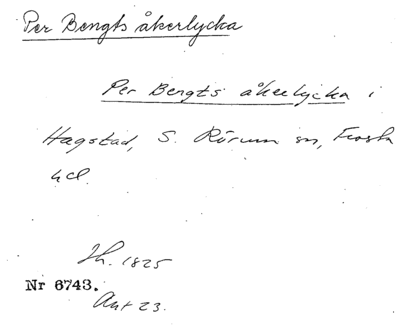 Per Bengts åkerlycka
Per Bengts åkerlycka i
Hagstad, S. Rörum sn, Frosta
hd.
Sk. 1825
Nr 6743.
Akt 23.